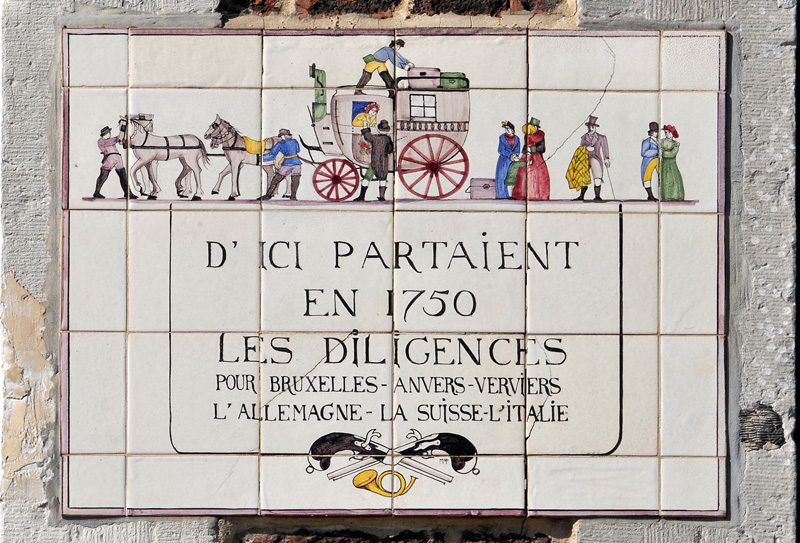 D'ICI PARTAIENT
EN 1750
LES DILIGENCES
POUR BRUXELLES-ANVERS-VERVIERS
L'ALLEMAGNE-LA SUISSE-L'ITALIE